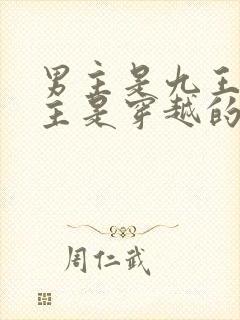 男主是九王
主是穿越的
周仁武